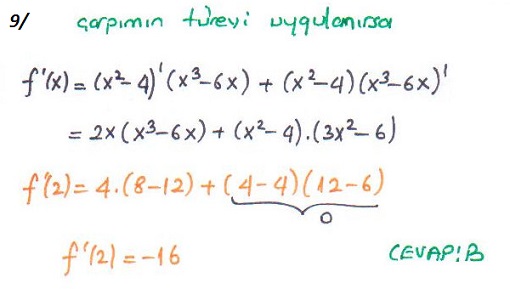 9/ çarpımın türevi uygulanırsa
f'(x) = (x²-4)'(x³-6x) + (x²-4)(x³-6x)'
= 2x(x³-6x) + (x²-4).(3x²-6)
f'(2) = 4.(8-12) + (4-4)(12-6)
0
f'(2) = -16 CEVAP:B